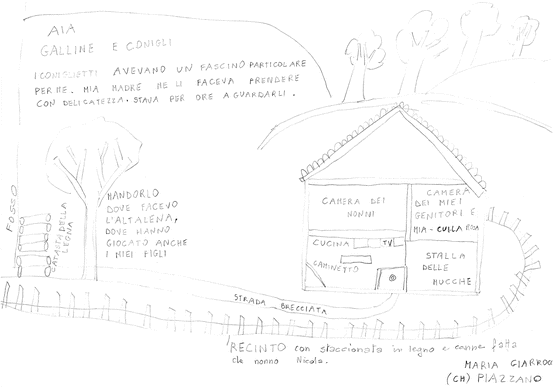 AIA
GALLINE E CONIGLI
I CONIGLIETTI AVEVANO UN FASCINO PARTICOLARE
PER ME. MIA MADRE ME LI FACEVA PRENDERE
CON DELICATEZZA. STAVA PER ORE A GUARDARLI.
FOSSO
CATASTA DELLA
LEGNA
MANDORLO
DOVE FACEVO
L'ALTALENA,
DOVE HANNO
GIOCATO ANCHE
I MIEI FIGLI
CAMERA DEI
NONNI
CAMERA
DEI MIEI
GENITORI E
MIA - CULLA
CUCINA
TV
CAMINETTO
STALLA
DELLE
MUCCHE
STRADA BRECCIATA
RECINTO con staccionata in legno e canne fatta
da nonno Nicola.
MARIA
(CH) PIAZZANO